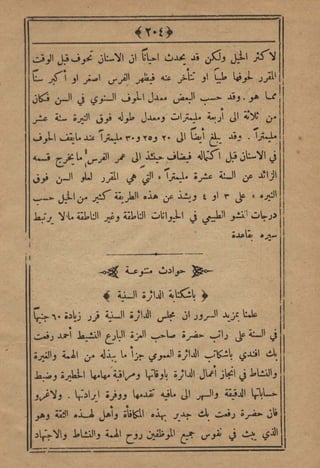 ﴿ ٢٠٤ ﴾
لا كثر الخيل ولكن قد يحدث احيانًا ان الاسنان تجوف قبل الوقت
المقرر لجوفها طبيًا او تتأخر عنه فيظهر الفرس اصغر او أكبر سنًا
مما هو . وقد حسب البعض معدل الجوف السنوي في السن فكان
من ثلاثة الى أربعة مليمترات ومعدل طوله فوق النيرة ستة عشر
مليمترًا . وقد يبلغ أيضًا الى ٢٠ و٢٥ و٣٠ مليمترًا عند ما يقف الجوف
في الاسنان قبل اكتماله فيضاف حينئذ الى عمر الفرس ما يخرج قسمه
الزائد عن الستة عشرة مليمترًا « التي هي المقرر لعلو السن فوق
النيرة » على ٣ او ٤ ويشذ عن هذه الطريقة كثير من الخيل حسب
درجات النشو الطبيعي في الحيوانات الناطقة وغير الناطقة مما لا يرتبط
سيره بقاعدة
حوادث متنوعة
﴿ باشكتابة الدائرة السنية ﴾
علمنا بمزيد السرور ان مجلس الدائرة السنية قرر زيادة ٦٠ جنيهًا
في السنة على راتب حضرة صاحب العزة البارع النشيط أحمد رفعت
بك افندي باشكاتب الدائرة العمومي جزآ ما يبذله من الهمة والغيرة
والنشاط في انجاز أعمال الدائرة باوقاتها ومراقبة مهامها الخطيرة وضبط
حساباتها الدقيقة والسهر الى مافيه تقدمها ووفرة ايرادتها . ولاغرو
فان حضرة رفعت بك جدير بهذه المكافأة وأهل لهذه الثقة وهو
الذي يبث في نفوس جميع الموظفين روح الهمة والنشاط والاجتهاد